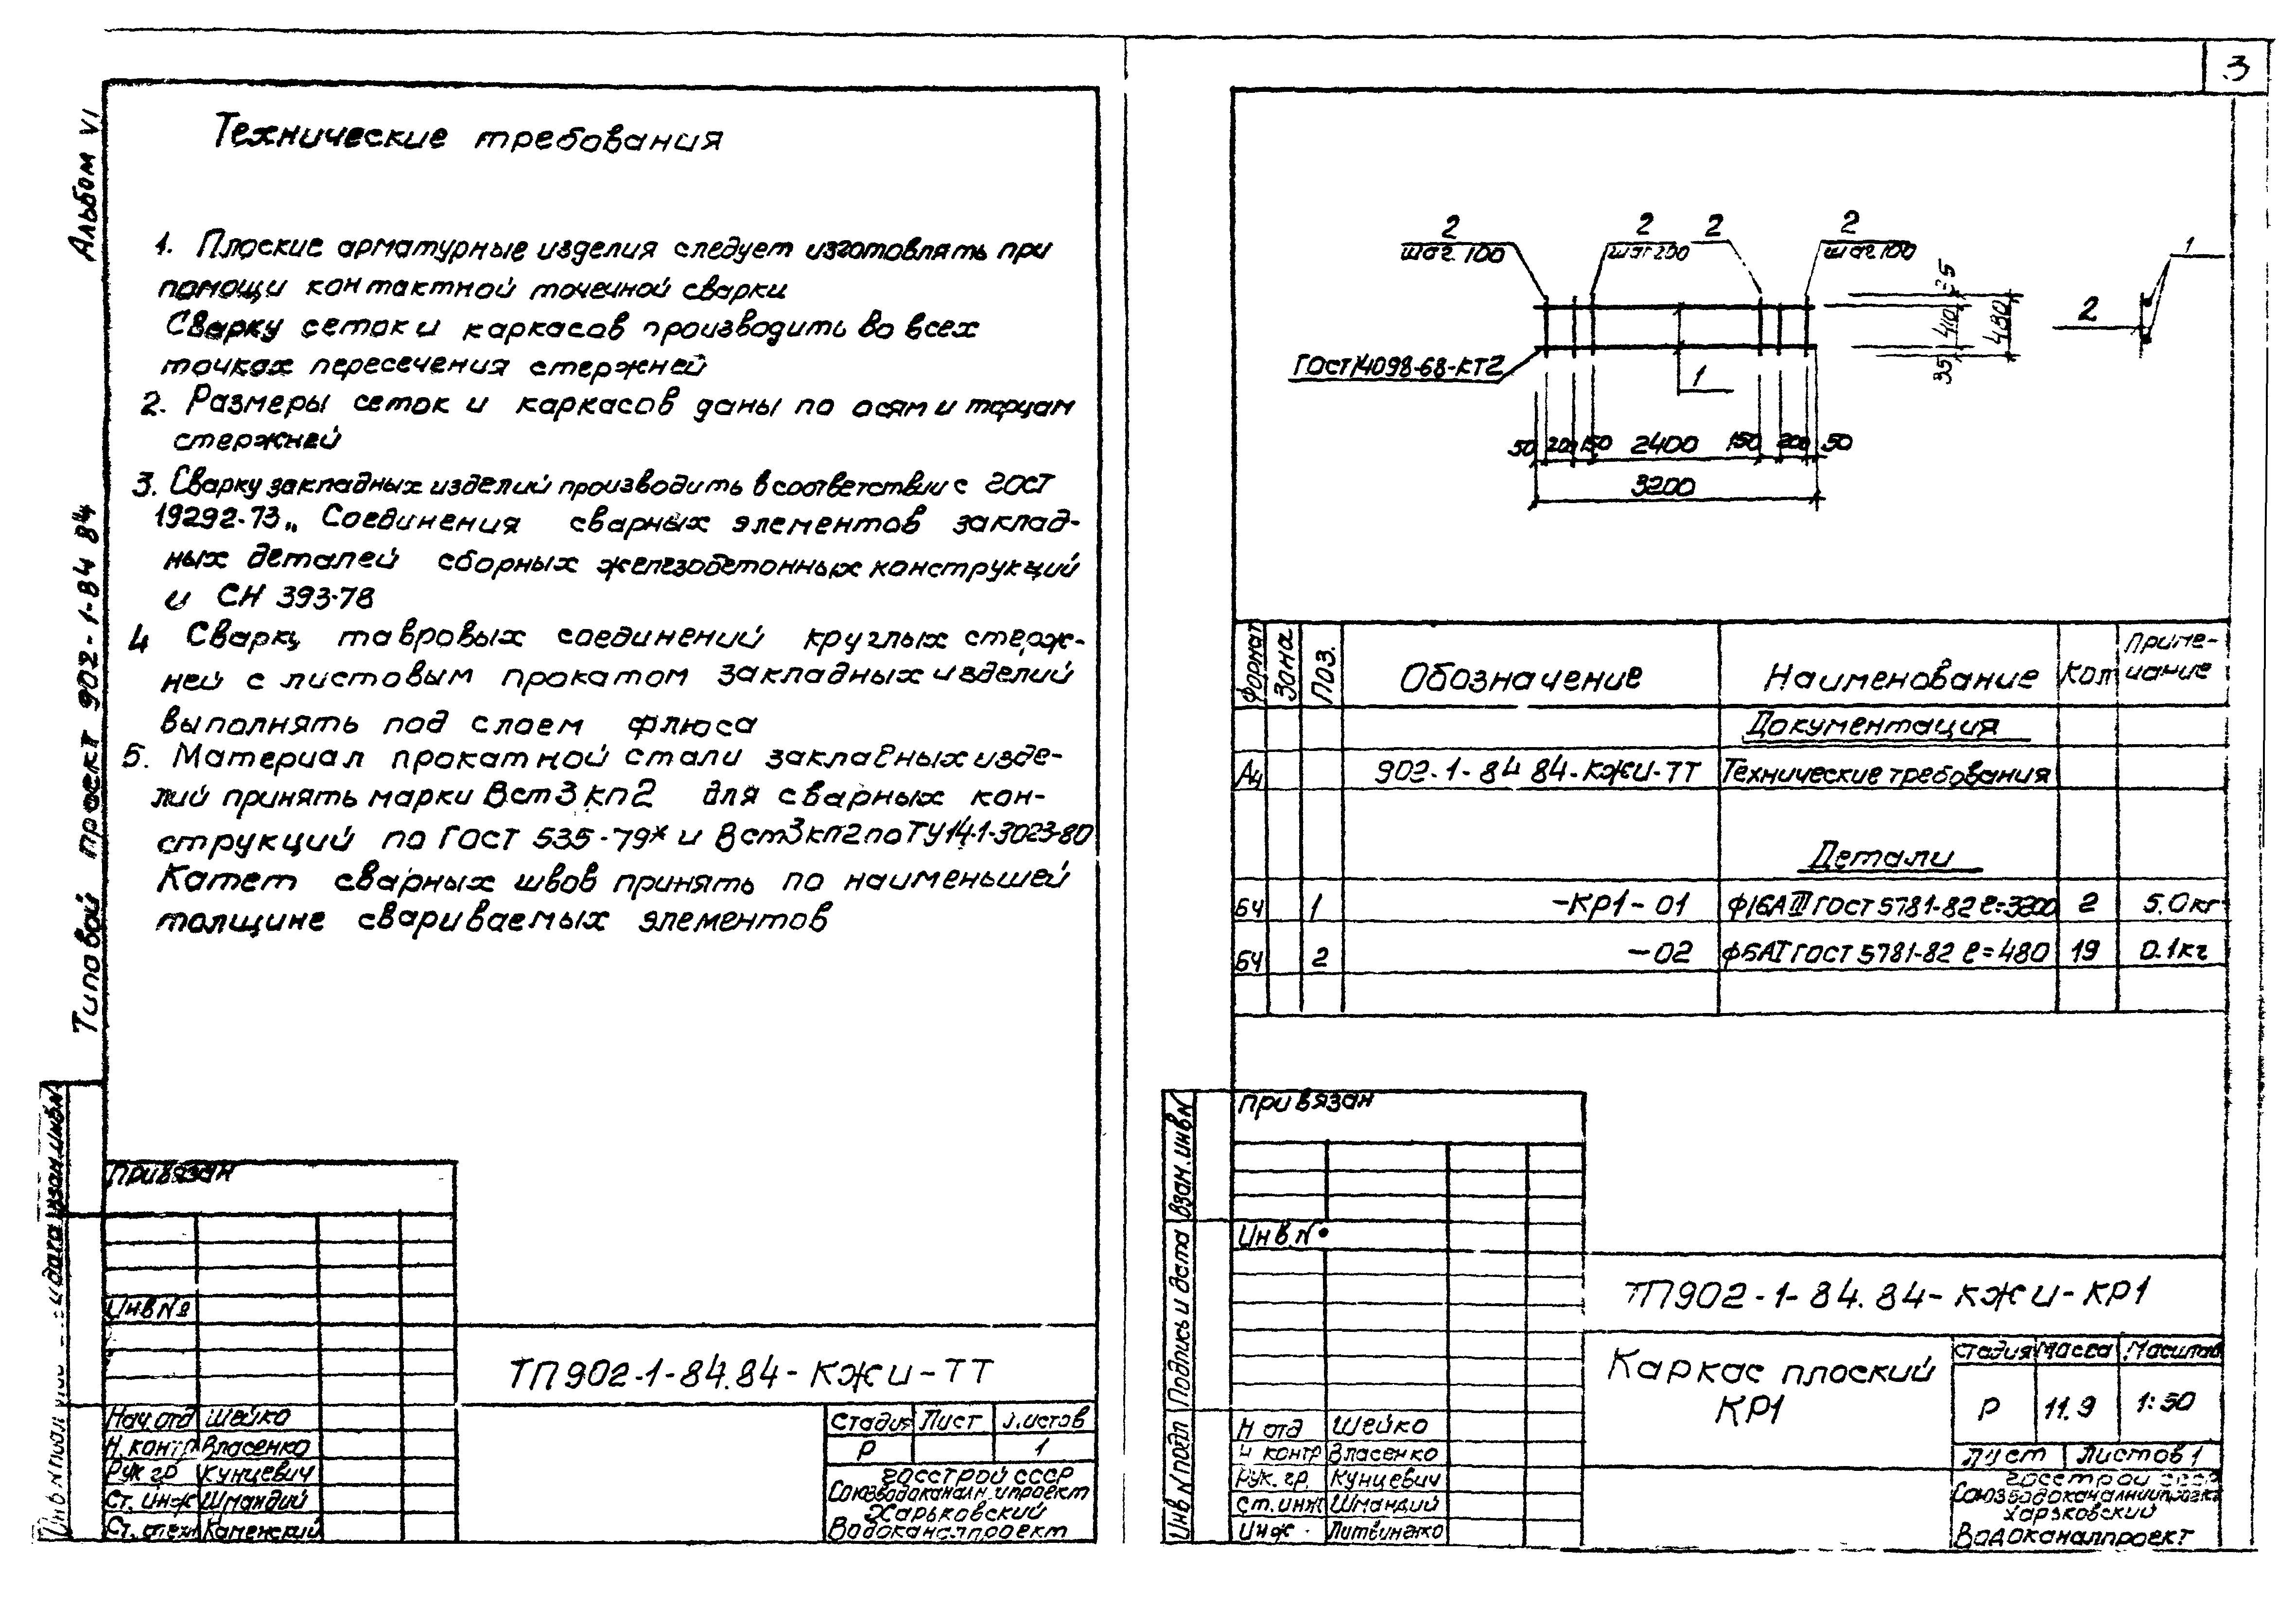 Альбом VI
Типовой проект 902-1-84 84
Технические требования
1. Плоские арматурные изделия следует изготовлять при
помощи контактной точечной сварки
Сварку сеток и каркасов производить во всех
точках пересечения стержней
2. Размеры сеток и каркасов даны по осям и торцам
стержней
3. Сварку закладных изделий производить в соответствии с ГОСТ
19292-73 „Соединения сварных элементов заклад-
ных деталей сборных железобетонных конструкций
и СН 393-78
4 Сварку тавровых соединений круглых стерж-
ней с листовым прокатом закладных изделий
выполнять под слоем флюса
5. Материал прокатной стали закладных изде-
лий принять марки Вст3кп2 для сварных кон-
струкций по ГОСТ 535-79* и Вст3кп2 по ТУ14-1-3023-80
Катет сварных швов принять по наименьшей
толщине свариваемых элементов
Привязан
Инв№
ТП902-1-84.84-КЖИ-ТТ
Нач.отд Шейко
Н.контр Власенко
Рук.гр Кунцевич
Ст.инж Шмандий
Ст.техн Каменский
Стадия Лист Листов
Р 1
Госстрой СССР
Союзводоканалниипроект
Харьковский
Водоканалпроект
и дата Взам.инв№
Инв №подл
3
2 2 2 2
шаг 100 шаг 200 шаг 100
1
2
35
410
480
35
ГОСТ14098-68-КТ2
1
50 200 150 2400 150 200 50
3200
Формат Зона Поз. Обозначение Наименование Кол Приме-
чание
Документация
А4 902-1-84 84-КЖИ-ТТ Технические требования
Детали
БЧ 1 -КР1-01 ф16АIII ГОСТ 5781-82 ℓ=3200 2 5.0кг
БЧ 2 -02 ф6АI ГОСТ 5781-82 ℓ=480 19 0.1кг
Привязан
Инв.№
ТП902-1-84.84-КЖИ-КР1
Каркас плоский
КР1
Стадия Масса Масштаб
Р 11.9 1:50
Лист Листов 1
Н отд Шейко
Н контр Власенко
Рук. гр. Кунцевич
Ст.инж Шмандий
Инж. Литвиненко
Госстрой СССР
Союзводоканалниипроект
Харьковский
Водоканалпроект
Инв №подл Подпись и дата Взам.инв№